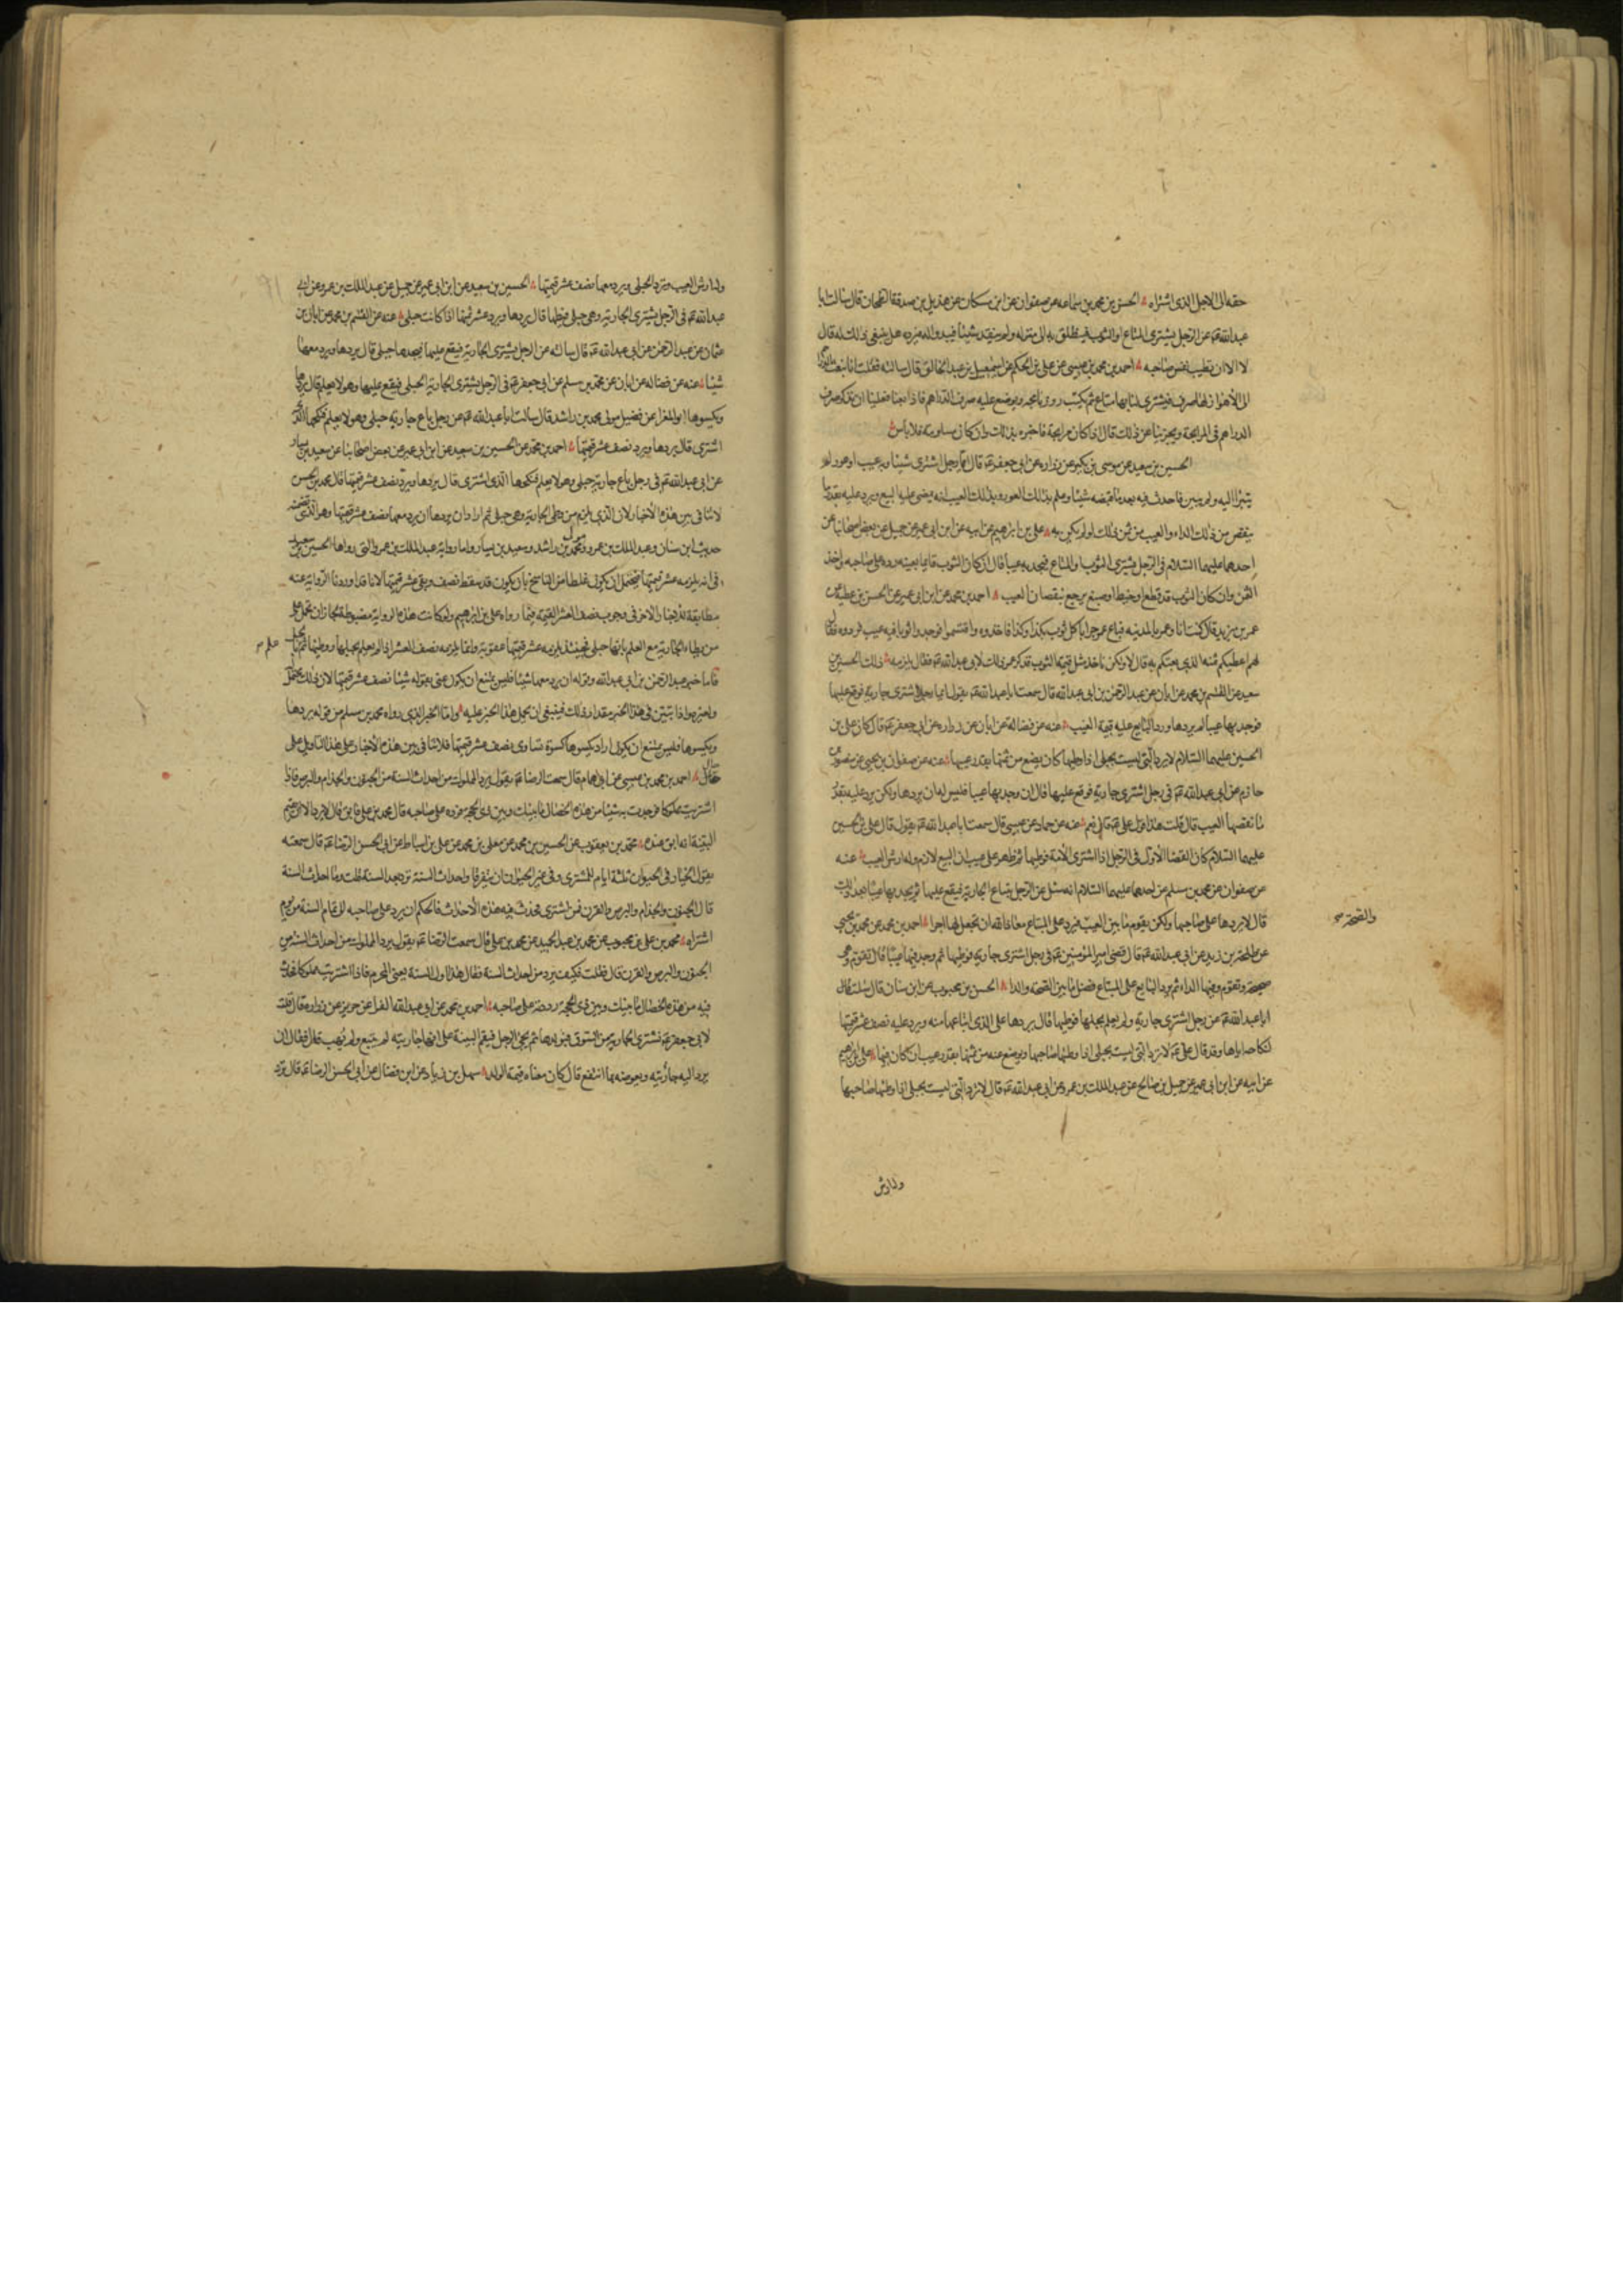 حقه الى الاجل الذى اشتراه الحسن بن محمد بن سماعه عن صفوان عن ابن مسكان عن هذيل بن صدقة الطحان قال سالت ابا
عبد الله عن الرجل يشترى المتاع او الثوب فينطلق به الى منزله ولم ينقد شيئا فيبدو له فيرده هل ينبغى ذلك له قال
لا الا ان تطيب نفس صاحبه احمد بن محمد بن عيسى عن على بن الحكم عن اسمعيل بن عبد الخالق قال سالته فقلت انا نبعث
الى الاهواز لها صرف فيشترى لنا بها متاع ثم نكتب ويوضع عليه صرف الدراهم فاذا بعنا فعلينا ان نذكر صرف
الدراهم فى المرابحة ويجزينا عن ذلك قال اذا كان مرابحة فاخبره بذلك وان كان مساومة فلا باس
الحسين بن سعيد عن موسى بن بكير عن زراره عن ابى جعفر قال ايما رجل اشترى شيئا وبه عيب او عوار لم
يتبرا اليه ولم يبين فاحدث فيه بعد ما قبضه شيئا وعلم بذلك العور وبذلك العيب انه يمضى عليه البيع ويرد عليه بقدر ما
ينقص من ذلك الداء والعيب من ثمن ذلك لو لم يكن به على بن ابرهيم عن ابيه عن ابن ابى عمير عن جميل عن بعض اصحابنا عن
احدهما عليهما السلام فى الرجل يشترى الثوب او المتاع فيجد به عيبا قال ان كان الثوب قايما بعينه رده على صاحبه واخذ
الثمن وان كان الثوب قد قطع او خيط او صبغ يرجع بنقصان العيب احمد بن محمد عن ابن ابى عمير عن الحسن بن عطيه عن
عمر بن يزيد قال كنت انا وعمر بالمدينه فباع عمر جرابا كل ثوب بكذا وكذا فاخذوه واقتسموا فوجدوا ثوبا فيه عيب فردوه فقال
لهم اعطيكم ثمنه الذى بعتكم به قال لا ولكن ناخذ مثل قيمة الثوب فذكر عمر ذلك لابى عبد الله فقال يلزمه ذلك الحسين بن
سعيد عن القسم بن محمد عن ابان عن عبد الرحمن بن ابى عبد الله قال سمعت ابا عبد الله يقول ايما رجل اشترى جارية فوقع عليها
فوجد بها عيبا لم يردها ورد البايع عليه قيمة العيب عنه عن فضالة عن ابان عن زراره عن ابى جعفر قال كان على بن
الحسين عليهما السلام لا يرد التى ليست بحبلى اذا وطيها كان يضع من ثمنها بقدر عيبها عنه عن صفوان بن يحيى عن منصور بن
حازم عن ابى عبد الله فى رجل اشترى جارية فوقع عليها قال ان وجد بها عيبا فليس له ان يردها ولكن يرد عليه بقدر
ما نقصها العيب قال قلت هذا قول على قال نعم عنه عن حماد عن عيسى قال سمعت ابا عبد الله يقول قال على بن الحسين
عليهما السلام كان القضا الاول فى الرجل اذا اشترى الامة فوطيها ثم ظهر على عيب ان البيع لازم وله ارش العيب عنه
عن صفوان عن محمد بن مسلم عن احدهما عليهما السلام انه سئل عن الرجل يبتاع الجارية فيقع عليها ثم يجد بها عيبا بعد ذلك
قال لا يردها على صاحبها ولكن يقوم ما بين العيب فيرد على المبتاع معاذ الله ان يجعل لها اجرا احمد بن محمد عن محمد بن يحيى
والصحة
عن طلحة بن زيد عن ابى عبد الله قال قضى امير المؤمنين فى رجل اشترى جارية فوطيها ثم وجد فيها عيبا قال تقوم وهى
صحيحة وتقوم وفيها الداء ثم يرد البايع على المبتاع فضل ما بين الصحة والدا الحسن بن محبوب عن ابن سنان قال سئلت
ابا عبد الله عن رجل اشترى جارية ولم يعلم بحبلها فوطيها قال يردها على الذى ابتاعها منه ويرد عليه نصف عشر قيمتها
لنكاحه اياها وقد قال على لا ترد التى ليست بحبلى اذا وطيها صاحبها ويوضع عنه من ثمنها بقدر عيب ان كان فيها على بن ابرهيم
عن ابيه عن ابن ابى عمير عن جميل بن صالح عن عبد الملك بن عمرو عن ابى عبد الله قال لا ترد التى ليست بحبلى اذا وطيها صاحبها
وله ارش
وله ارش العيب وترد الحبلى ويرد معها نصف عشر قيمتها الحسين بن سعيد عن ابن ابى عمير عن جميل عن عبد الملك بن عمرو عن ابى
عبد الله فى الرجل يشترى الجارية وهى حبلى فيطاها قال يردها ويرد عشر ثمنها اذا كانت حبلى عنه عن القسم بن محمد عن ابان بن
عثمان عن عبد الرحمن عن ابى عبد الله قال سالته عن الرجل يشترى الجارية فيقع عليها فيجدها حبلى قال يردها ويرد معها
شيئا عنه عن فضاله عن ابان عن محمد بن مسلم عن ابى جعفر فى الرجل يشترى الجارية الحبلى فيقع عليها وهو لا يعلم قال يردها
ويكسوها ابو المغرا عن فضيل مولى محمد بن راشد قال سالت ابا عبد الله عن رجل باع جارية حبلى وهو لا يعلم فنكحها الذى
اشترى قال يردها ويرد نصف عشر قيمتها احمد بن محمد عن الحسين بن سعيد عن ابن ابى عمير عن بعض اصحابنا عن سعيد بن يسار
عن ابى عبد الله فى رجل باع جارية حبلى وهو لا يعلم فنكحها الذى اشترى قال يردها ويرد نصف عشر قيمتها قال محمد بن الحسن
لا تنافى بين هذه الاخبار لان الذى يلزم من وطى الجارية وهى حبلى ثم اراد ان يردها ان يرد معها نصف عشر قيمتها وهو الذى تضمنه
حديث ابن سنان وعبد الملك بن عمرو ومحمد بن راشد وسعيد بن يسار واما رواية عبد الملك بن عمرو التى رواها الحسين بن سعيد
فى انه يلزمه عشر قيمتها فيحتمل ان يكون غلطا من الناسخ بان يكون قد سقط نصف وبقى عشر قيمتها لانا قد اوردنا الرواية عنه
مطابقة للاخبار الاخر فى وجوب نصف العشر القيمة فيما رواه على بن ابرهيم ولو كانت هذه الرواية مضبوطة لجاز ان تحمل على
من يطاء الجارية مع العلم بانها حبلى فحينئذ يلزمه عشر قيمتها عقوبة وانما يلزمه نصف العشر اذا لم يعلم بحبلها ووطيها
فاما خبر عبد الرحمن بن ابى عبد الله وقوله ان يرد معها شيئا فليس يمتنع ان يكون عنى بقوله شيئا نصف عشر قيمتها لان ذلك محتمل
ولغيره واذا تبين فى هذا الخبر مقدار ذلك فينبغى ان يحمل هذا الخبر عليه واما الخبر الذى رواه محمد بن مسلم من قوله يردها
ويكسوها فليس يمتنع ان يكون اراد يكسوها كسوة تساوى نصف عشر قيمتها فلا تنافى بين هذه الاخبار على هذا التاويل على
حال احمد بن محمد بن عيسى عن ابى همام قال سمعت الرضا يقول يرد المملوك من احداث السنة من الجنون والجذام والبرص فاذا
اشتريت مملوكا فوجدت به شيئا من هذه الخصال ما بينك وبين ذى الحجة فرده على صاحبه قال محمد بن على قال
البينة انه ابق عنده محمد بن يعقوب عن الحسين بن محمد عن معلى بن محمد عن على بن اسباط عن ابى الحسن الرضا قال سمعته
يقول الخيار فى الحيوان ثلثة ايام للمشترى وفى غير الحيوان ان يتفرقا واحداث السنة ترد بعد السنة قلت وما احداث السنة
قال الجنون والجذام والبرص والقرن فمن اشترى فحدث فيه هذه الاحداث فالحكم ان يرد على صاحبه الى تمام السنة من يوم
اشتراه محمد بن على بن محبوب عن محمد بن عبد الحميد عن محمد بن على قال سمعت الرضا يقول يرد المملوك من احداث السنة من
الجنون والبرص والقرن قال فقلت فكيف يرد من احداث السنة فقال هذا اول السنة يعنى المحرم فاذا اشتريت مملوكا فحدث
فيه من هذه الخصال ما بينك وبين ذى الحجة رددته على صاحبه احمد بن محمد عن ابى عبد الله الفرا عن حريز عن زراره قال قلت
لابى جعفر نشترى الجارية من السوق فيولدها ثم يجئ الرجل فيقيم البينة على انها جاريته لم يبع ولم يهب قال فقال ان
يرد اليه جاريته ويعوضه بما انتفع قال كان معناه قيمة الولد سهل بن زياد عن ابن فضال عن ابى الحسن الرضا قال ترد